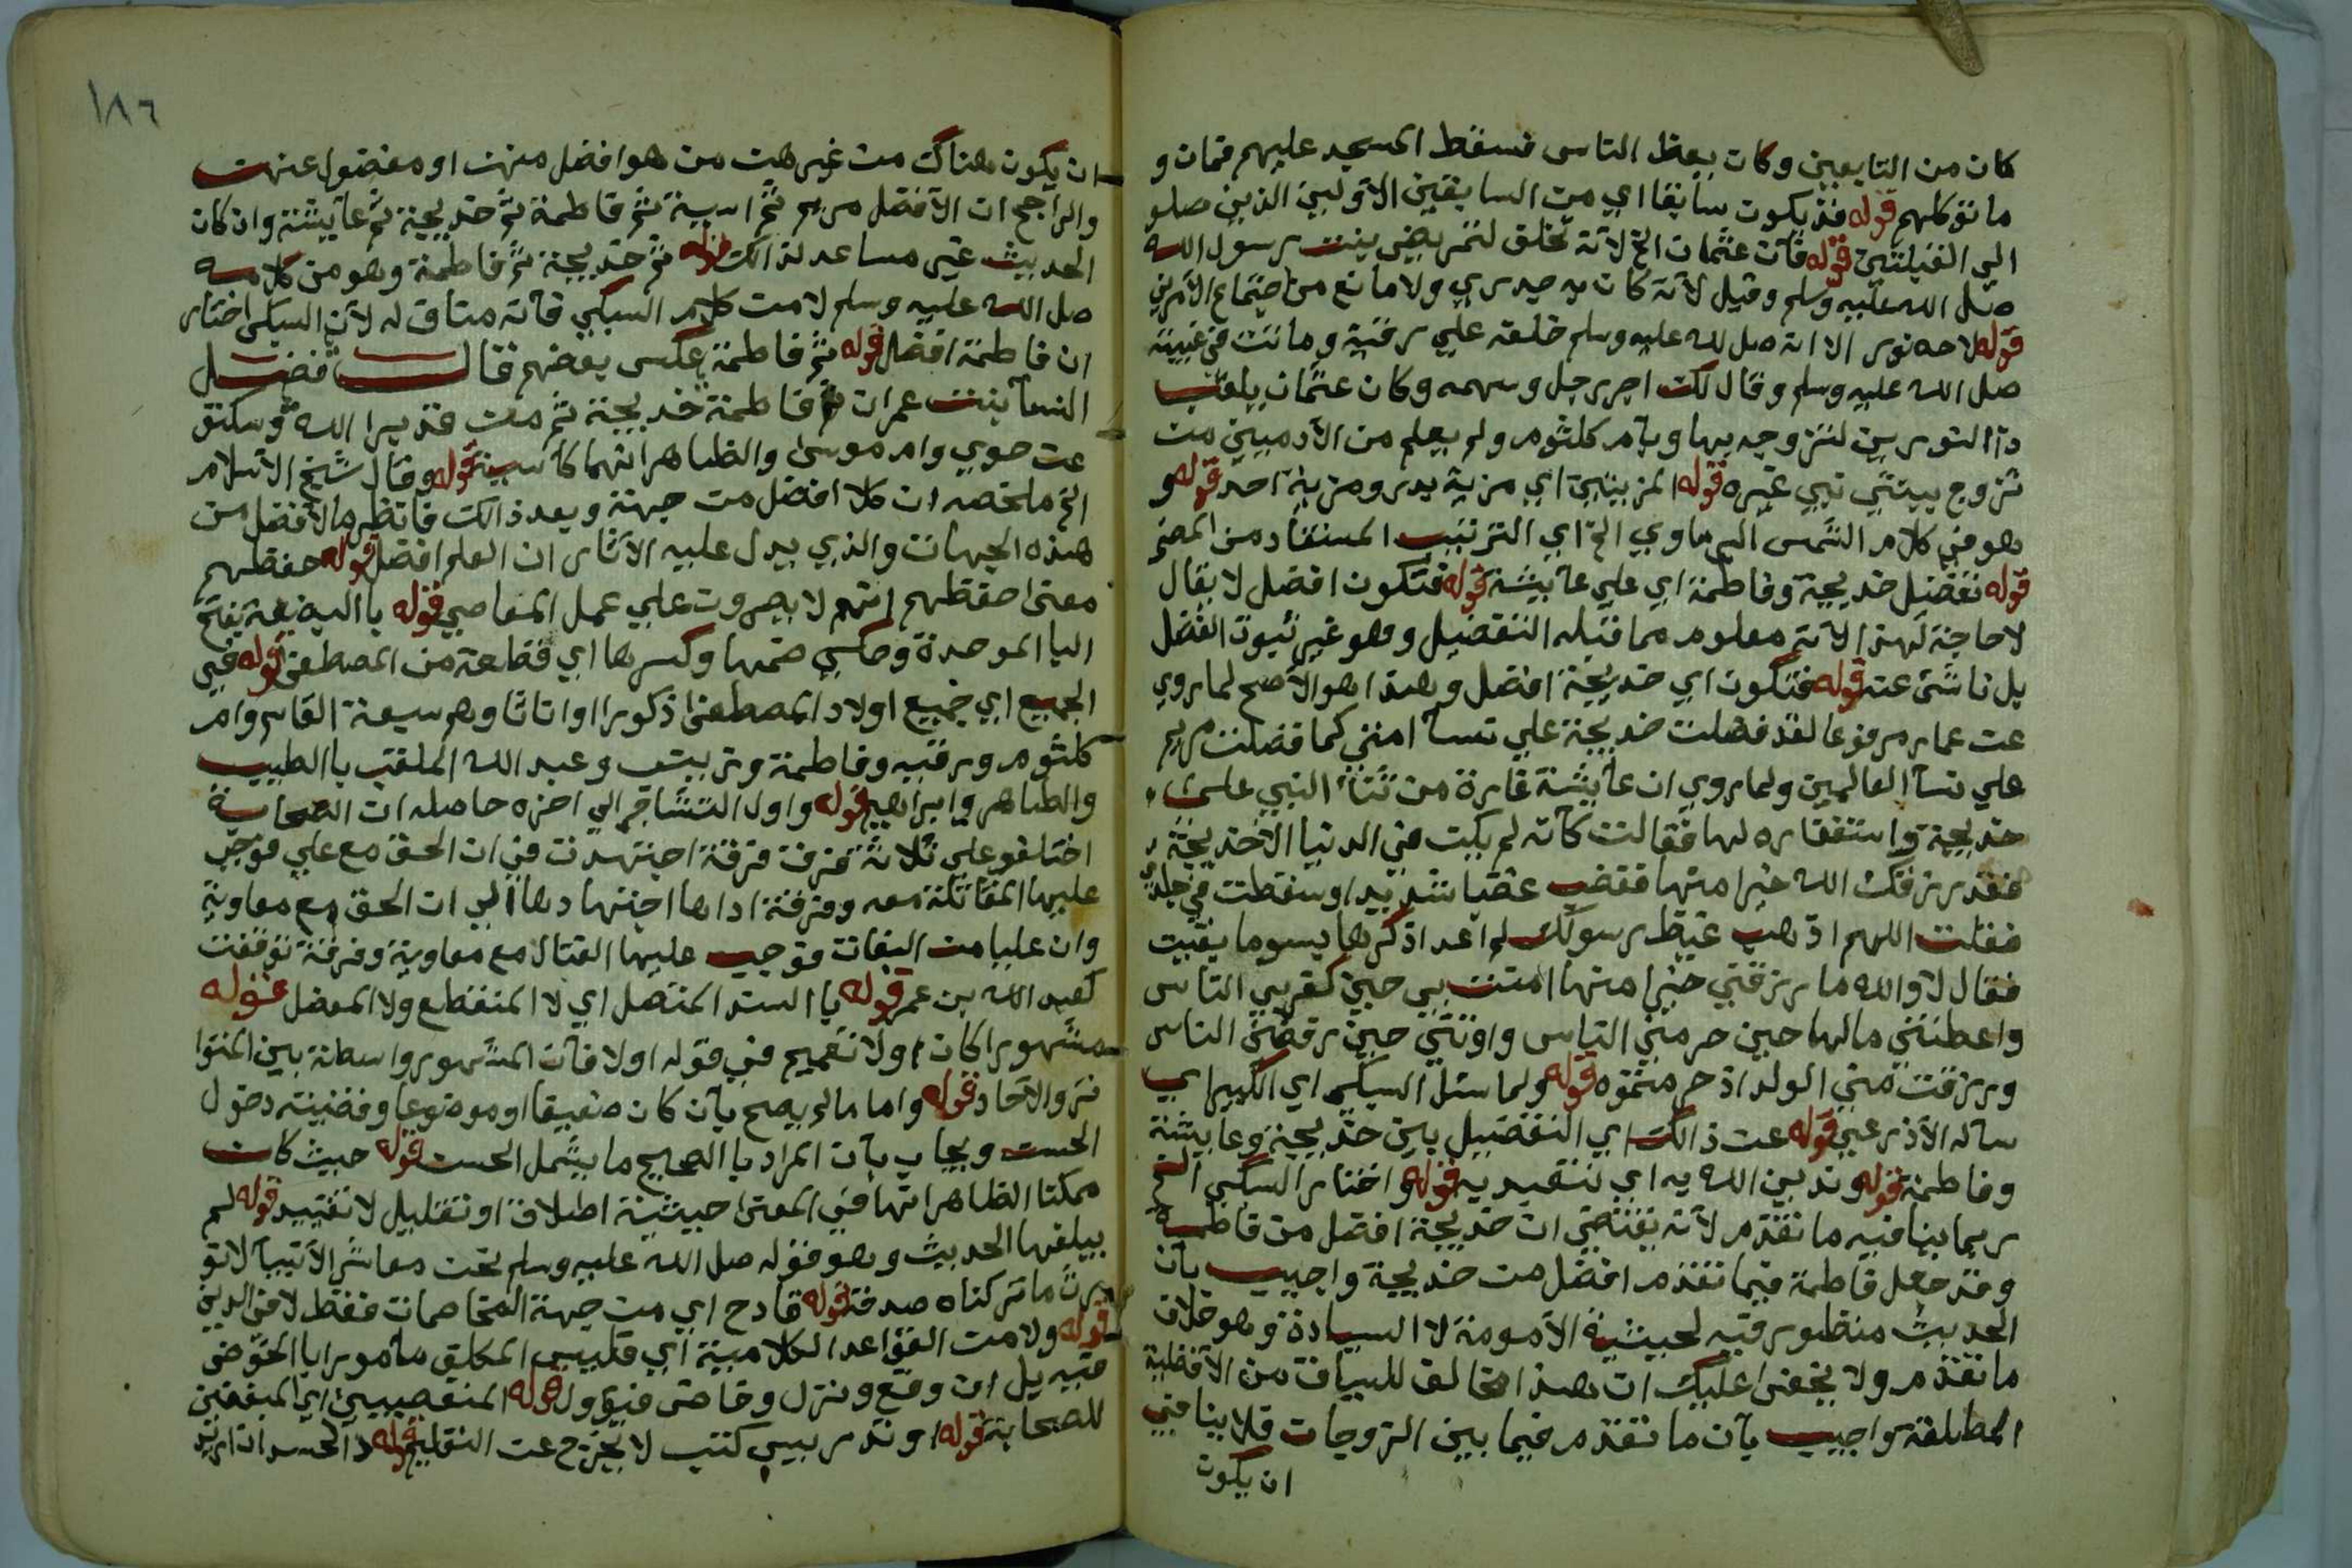 كان من التابعين وكان يعظ الناس فسقط المسجد عليهم فمات و
ماتو كلهم قوله فقد يكون سابقا اي من السابقين الاولين الذين صلو
الي القبلتين قوله فان عثمان الخ لانه تخلق لتمريض بنت رسول الله
صلى الله عليه وسلم وقيل لانه كان به جدري ولا مانع من اجتماع الامرين
قوله لا حد نور الا انه صلى الله عليه وسلم خلفه علي رقية وماتت في غيبته
صلى الله عليه وسلم وقال لك اجر رجل وسهمه وكان عثمان يلقب
ذا النورين لتزوجه بها وبام كلثوم ولم يعلم من الادميين من
تزوج ببنتي نبي غيره قوله المزيتين اي مزية بدر ومزية احد قوله و
هو في كلام الشمس البرماوي الخ اي الترتيب المستفاد من
قوله تفضيل خديجة وفاطمة اي علي عايشة قوله فتكون افضل لا يقال
لا حاجة لهذا لانه معلوم مما قبله التفضيل وهو غير ثبوت الفضل
بل ناشئ عنه قوله فتكون اي خديجة افضل وهذا هو الاصح لما روي
عن عمار مرفوعا لقد فضلت خديجة علي نسا امتي كما فضلت مريم
علي نسا العالمين ولما روي ان عايشة غارة من ثنا النبي على
خديجة واستغفاره لها فقالت كانه لم يكن في الدنيا الا خديجة
فقد رزقك الله خيرا منها فغضب غضبا شديدا وسقطت في جلدي
فقلت اللهم اذهب غيظ رسولك لم اعد اذكرها بسوما بقيت
فقال لا والله ما رزقني خيرا منها امنت بي حين كفر بي الناس
واعطتني مالها حين حرمني الناس واوتني حين رفضني الناس
ورزقت مني الولد اذ حرمتموه قوله ولما سئل السبكي اي الكبير اي
ساله الاذرعي قوله عن ذالك اي التفضيل بين خديجة وعايشة
وفاطمة قوله وندين الله به اي نتعبد به قوله واختار السبكي الخ
ربما ينافيه ما تقدم لانه يقتضي ان خديجة افضل من فاطمة
وقد جعل فاطمة فيما تقدم افضل من خديجة واجيب بان
الحديث منظور فيه لحيثية الامومة لا السيادة وهو خلاف
ما تقدم ولا يخفى عليك ان هذا مخالف للسياق من الافضلية
المطلقة واجيب بان ما تقدم فيما بين الزوجات فلا ينافي
ان يكون
١٨٦
ان يكون هناك من غيرهن من هو افضل منهن او مفضول عنهن
والراجح ان الافضل مريم ثم اسية ثم فاطمة ثم خديجة ثم عايشة وان كان
الحديث غير مساعد لذالك قوله ثم خديجة ثم فاطمة وهو من كلامه
صلى الله عليه وسلم لا من كلام السبكي فانه مناف له لان السبكي اختار
ان فاطمة افضل قوله ثم فاطمة عكس بعضهم فقال فضل
النسا بنت عمران ثم فاطمة خديجة ثم من قد برا الله وسكتو
عن حوي وام موسى والظاهر انهما كاسية قوله وقال شيخ الاسلام
الخ ملخصه ان كلا افضل من جهة وبعد ذالك فانظر ما الافضل من
هذه الجهات والذي يدل عليه الاثار ان العلم افضل قوله حفظهم
معنى حفظهم انهم لا يصرون علي عمل المعاصي قوله باالبضعة بفتح
البا الموحدة وحكي ضمها وكسرها اي قطعة من المصطفى قوله في
الجميع اي جميع اولاد المصطفى ذكورا او اناثا وهم سبعة القاسم وام
كلثوم ورقيه وفاطمة وزينب وعبد الله الملقب باالطيب
والطاهر وابراهيم قوله واول التشاجر الي اخره حاصله ان الصحابة
اختلفو علي ثلاثة فرق فرقة اجتهدت في ان الحق مع علي فوجب
عليها المقاتلة معه وفرقة اداها اجتهادها الي ان الحق مع معاوية
وان عليا من البغات فوجب عليها القتال مع معاوية وفرقة توقفت
كعبد الله بن عمر قوله باالسند المتصل اي لا المنقطع ولا المعضل قوله
مشهورا كان اولا تعميم في قوله اولا فان المشهور واسطة بين المتوا
تر والاحاد قوله واما مالم يصح بان كان ضعيفا او موضوعا وقضيته دخول
الحسن ويجاب بان المراد باالصحيح ما يشمل الحسن قوله حيث كان
ممكنا الظاهر انها في المعنى حيثية اطلاق او تقليل لا تقييد قوله لم
يبلغها الحديث وهو قوله صلى الله عليه وسلم نحن معاشر الانبيا لا نو
رث ما تركناه صدقة قوله قادح اي من جهة المخاصمات فقط لا في الدين
قوله ولا من القواعد الكلامية اي فليس المكلف مامورا باالخوض
فيه بل ان وقع ونزل وخاض فيؤول قوله المتعصبين اي المبغضين
للصحابة قوله او تدريس كتب لا تخرج عن التعليم قوله الحسد ان اريد